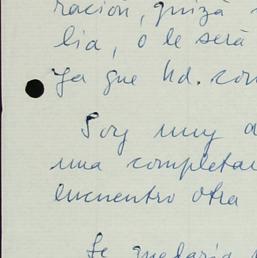 ración, quizá
lia, o le será
Ya que Ud. con
Soy muy a
una completa
encuentro otra
Le quedaría